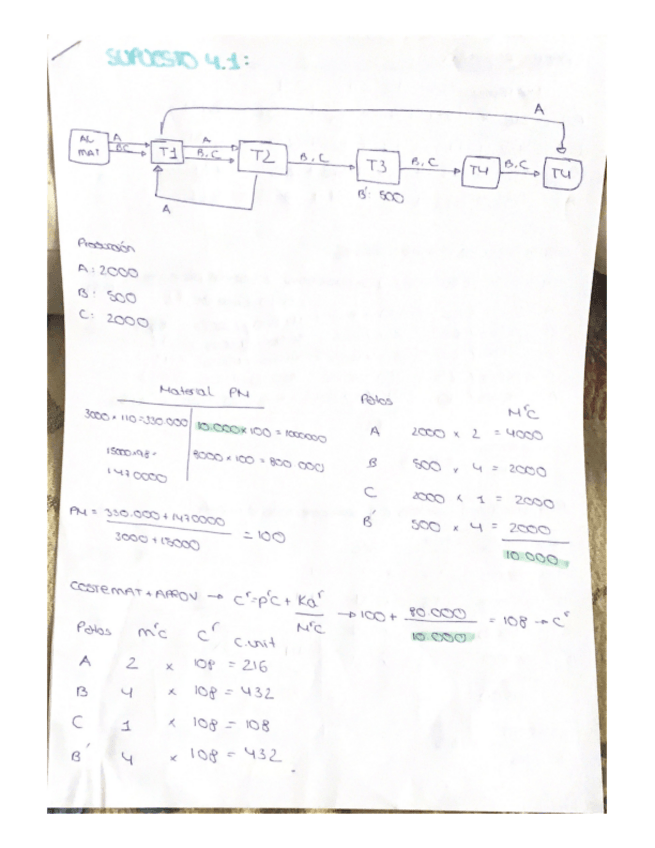 SUPUESTO 4.1:
A
AL MAT
A
B,C
T1
A
B, C
T2
B, C
T3
B, C
T4
B, C
T4
A
B': 500
Producción
A: 2000
B: 500
C: 2000
Material PM
3000 x 110 = 330.000 10.000 x 100 = 1000000
15000 x 98 = 8000 x 100 = 800 000
1470000
PM = 330.000 + 1470000 / 3000 + 15000 = 100
Pdtos
MʳC
A 2000 x 2 = 4000
B 500 x 4 = 2000
C 2000 x 1 = 2000
B' 500 x 4 = 2000
10.000
COSTE MAT + APROV → Cʳ = pʳC + Kaʳ / MʳC → 100 + 80.000 / 10.000 = 108 → Cʳ
Pdtos mʳc Cʳ C.unit
A 2 x 108 = 216
B 4 x 108 = 432
C 1 x 108 = 108
B' 4 x 108 = 432